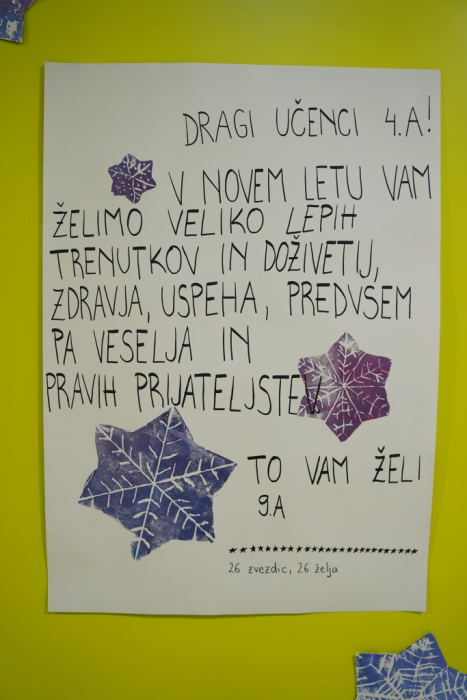 DRAGI UČENCI 4.A!
V NOVEM LETU VAM
ŽELIMO VELIKO LEPIH
TRENUTKOV IN DOŽIVETIJ,
ZDRAVJA, USPEHA, PREDVSEM
PA VESELJA IN
PRAVIH PRIJATELJSTEV.
TO VAM ŽELI
9.A
26 zvezdic, 26 želja